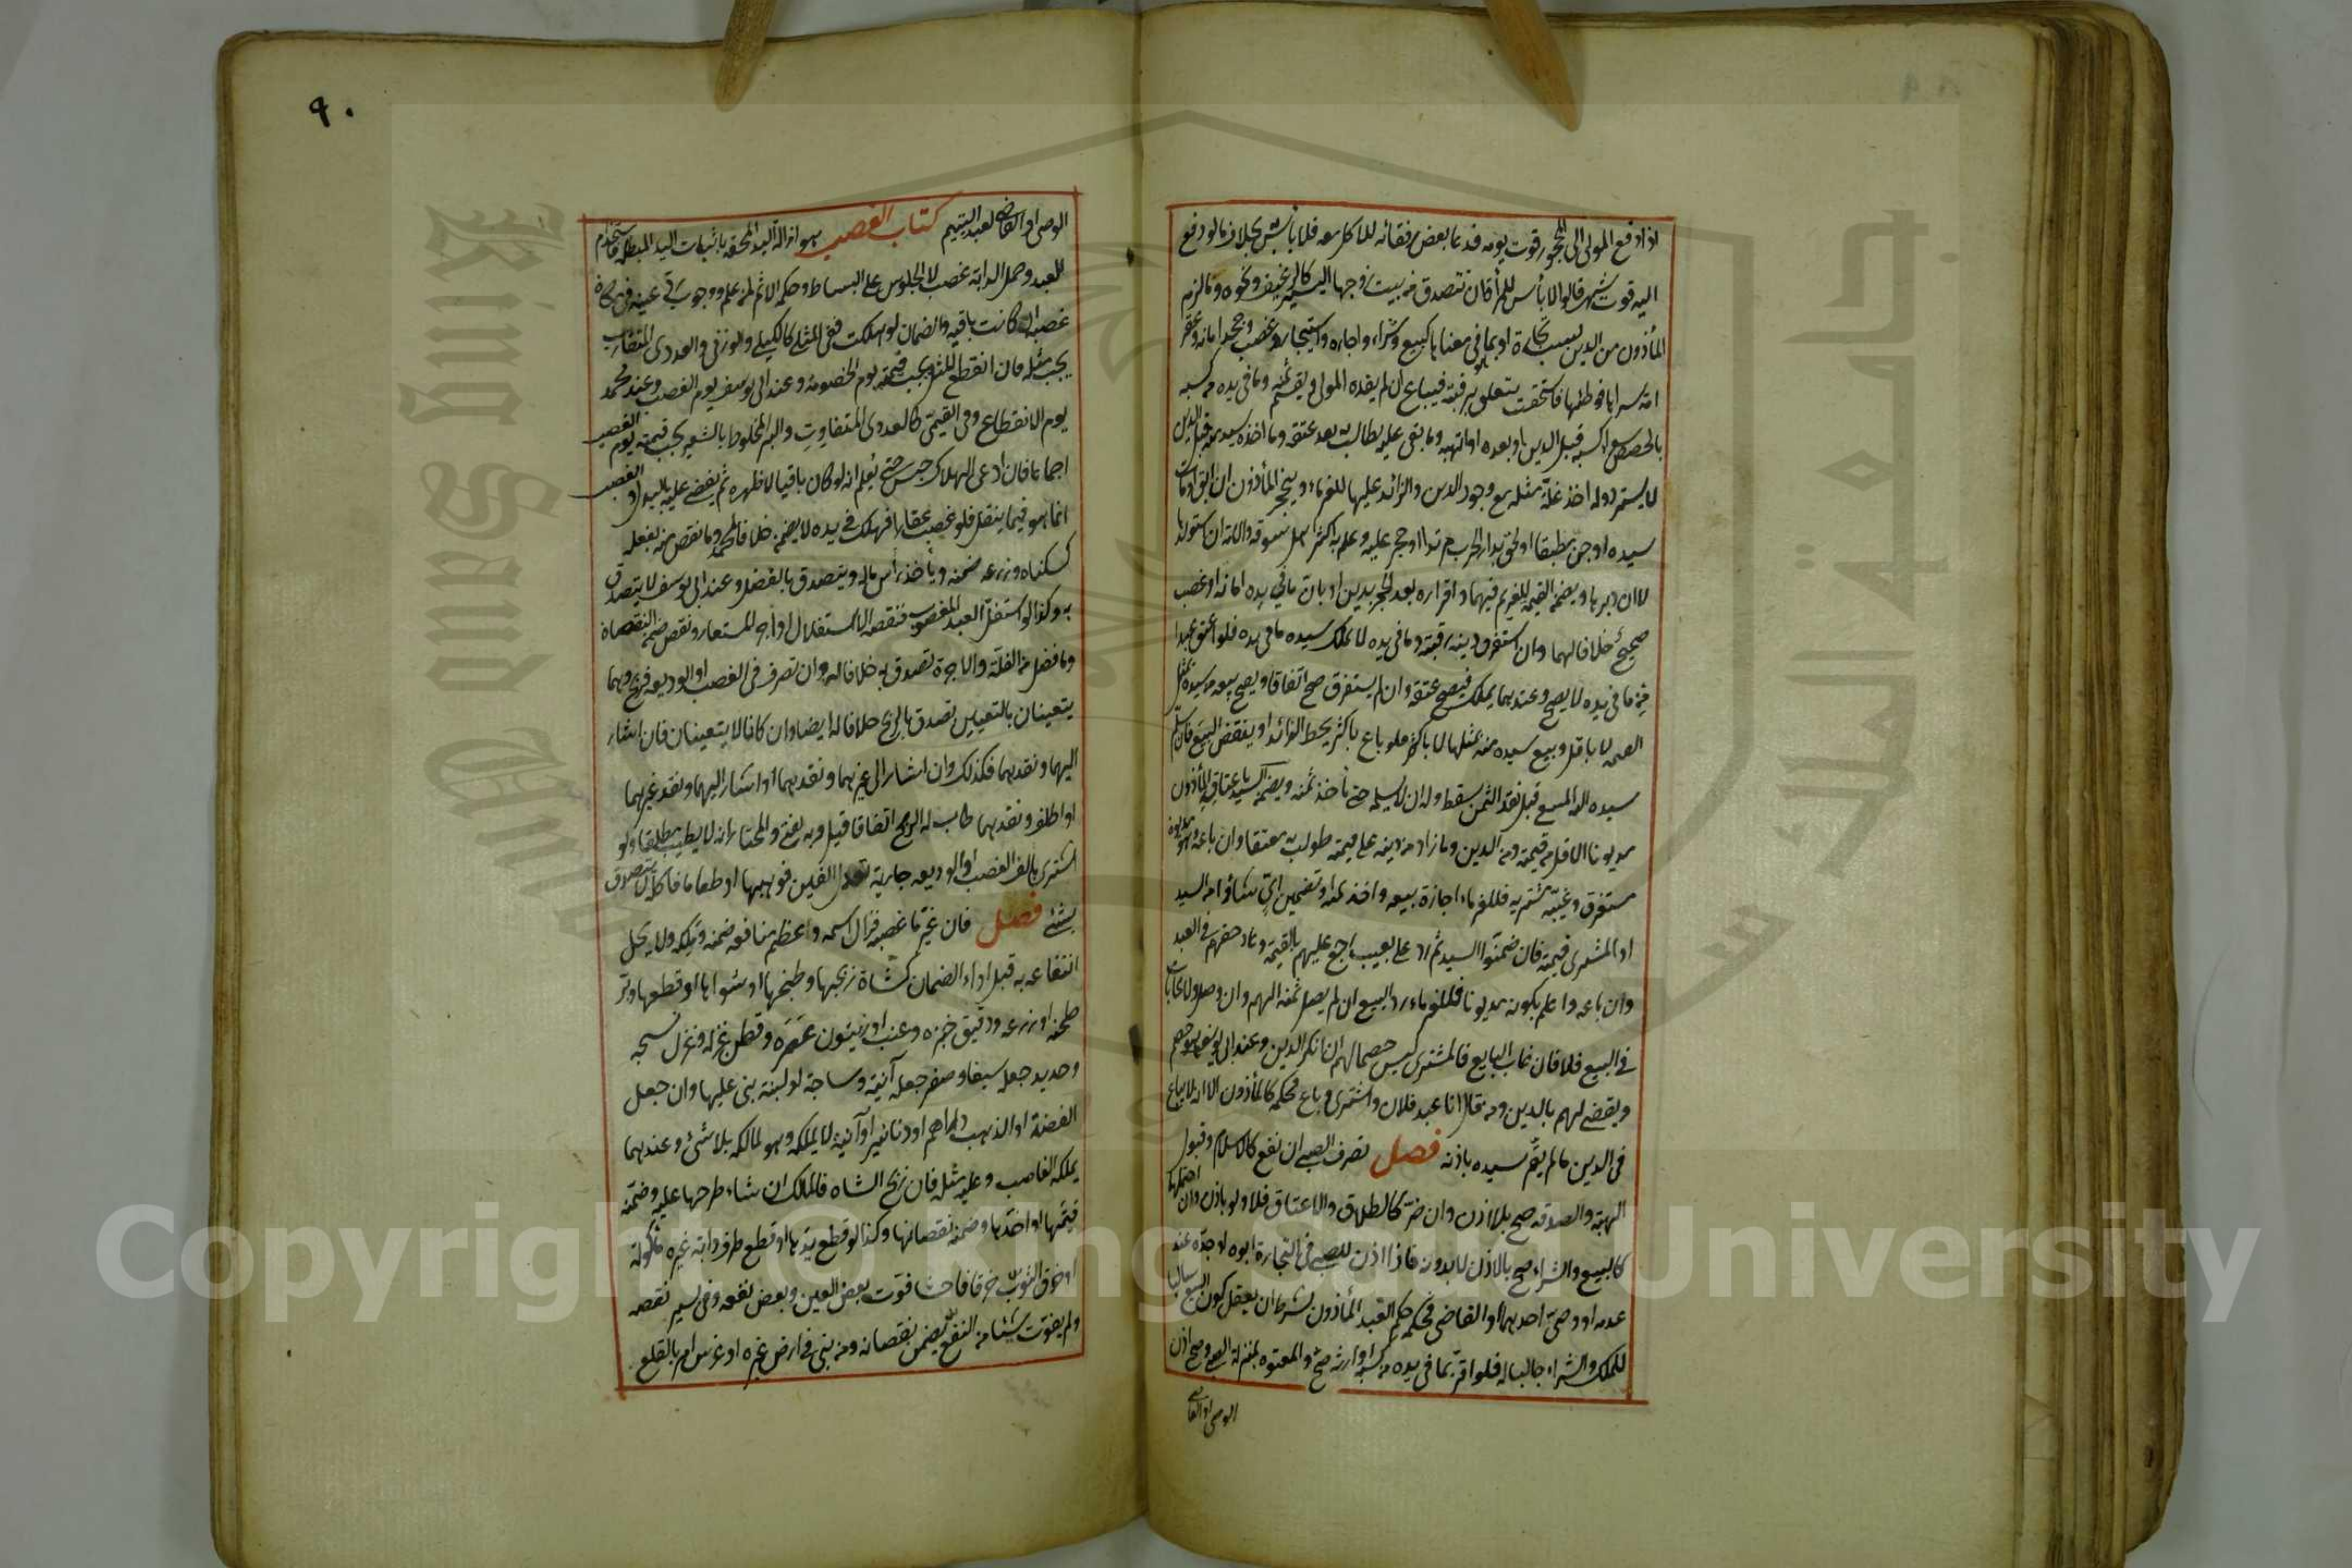 اذا دفع المولى الى المحجور قوت يومه فدعا بعض رفقائه للاكل معه فلا بأس بخلاف ما لو دفع
اليه قوت شهر قالوا لا بأس للمرأة ان تتصدق من بيت زوجها اليسير كالرغيف ونحوه وما لزم
المأذون من الدين بسبب تجارة او بما في معناها كبيع وشراء واجاره واستيجار وغصب وجحد امانه وعقر
امة شراها فوطئها فاستحقت يتعلق برقبته فيباع ان لم يفده المولى ويقسم ثمنه وما في يده من كسبه
بالحصص سواء كسبه قبل الدين او بعده او اتهبه وما بقي عليه يطالب به بعد عتقه وما اخذه سيده منه قبل الدين
لا يسترد وله اخذ غلة مثله مع وجود الدين والزائد عليها للغرماء وينحجر المأذون ان ابق او مات
سيده او جن مطبقا او لحق بدار الحرب مرتدا او حجر عليه وعلم به اكثر اهل سوقه والامة ان استولدها
لا ان دبرها ويضمن القيمة للغريم فيهما واقراره بعد الحجر بدين او بان ما في يده امانة او غصب
صحيح خلافا لهما وان استغرق دينه رقبته وما في يده لا يملك سيده ما في يده فلو اعتق عبدا
مما في يده لا يصح وعندهما يملك فيصح عتقه وان لم يستغرق صح اتفاقا ويصح بيعه من سيده بمثل
القيمة لا باقل وبيع سيده منه بمثلها لا باكثر فلو باع باكثر يحط الزائد او ينقض البيع فان سلم
سيده اليه المبيع قبل نقد الثمن سقط وله ان لا يسلمه حتى يأخذ ثمنه ويضمن السيد باعتاق المأذون
مديونا الاقل من قيمته ومن الدين وما زاد من دينه على قيمته طولب به معتقا وان باعه وهو مديون
مستغرق وغيبه مشتريه فللغرماء اجازة بيعه واخذ ثمنه او تضمين اي شاؤا من السيد
او المشتري قيمته فان ضمنوا السيد ثم رد عليه بعيب رجع عليهم بالقيمة وعاد حقهم في العبد
وان باعه واعلم بكونه مديونا فللغرماء رد البيع ان لم يصل ثمنه اليهم وان وصل ولا محاباة
في البيع فلا فان غاب البايع فالمشتري ليس خصما لهم ان انكر الدين وعند ابي يوسف هو خصم
ويقضى لهم بالدين ومن قال انا عبد فلان واشترى وباع فحكمه كالمأذون الا انه لا يباع
في الدين ما لم يقر سيده باذنه فصل تصرف الصبي ان نفع كالاسلام وقبول
الهبة والصدقة صح بلا اذن وان ضر كالطلاق والاعتاق فلا ولو باذن وان احتملهما
كالبيع والشراء صح بالاذن لا بدونه فاذا اذن للصبي في التجارة ابوه او جده عند
عدمه او وصي احدهما او القاضي فحكمه حكم العبد المأذون بشرط ان يعقل كون البيع سالبا
للملك والشراء جالبا له فلو اقر بما في يده من كسبه او ارثه صح والمعتوه بمنزلة الصبي وصح اذن
الوصي او القاضي
٩٠
الوصي او القاضي لعبد اليتيم كتاب الغصب هو ازالة اليد المحقة باثبات اليد المبطلة فاستخدام
العبد وحمل الدابة غصب لا الجلوس على البساط وحكمه الاثم لمن علم ووجوب رد عينه في مكان
غصبه ان كانت باقية والضمان لو هلكت ففي المثلي كالكيلي والوزني والعددي المتقارب
يجب مثله فان انقطع المثل يجب قيمته يوم الخصومة وعند ابي يوسف يوم الغصب وعند محمد
يوم الانقطاع وفي القيمي كالعددي المتفاوت والبر المخلوط بالشعير يجب قيمته يوم الغصب
اجماعا فان ادعى الهلاك حبس حتى يعلم انه لو كان باقيا لاظهره ثم يقضى عليه بالبدل والغصب
انما هو فيما ينقل فلو غصب عقارا فهلك في يده لا يضمن خلافا لمحمد وما نقص منه بفعله
كسكناه وزرعه ضمنه ويأخذ رأس ماله ويتصدق بالفضل وعند ابي يوسف لا يتصدق
به وكذا لو استغل العبد المغصوب فنقصه الاستغلال او آجر المستعار ونقص ضمن النقصان
وما فضل من الغلة والاجرة تصدق به خلافا له وان تصرف في الغصب او الوديعة فربح وهما
يتعينان بالتعيين تصدق بالربح خلافا له ايضا وان كانا لا يتعينان فان اشار
اليهما ونقدهما فكذلك وان اشار الى غيرهما ونقدهما او اشار اليهما ونقد غيرهما
او اطلق ونقدهما طاب له الربح اتفاقا قيل وبه يفتى والمختار انه لا يطيب مطلقا ولو
اشترى بالف الغصب او الوديعة جارية تعدل الفين فوهبها او طعاما فاكله لا يتصدق
بشئ فصل فان غير ما غصبه فزال اسمه واعظم منافعه ضمنه وملكه ولا يحل
انتفاعه به قبل اداء الضمان كشاة ذبحها وطبخها او شواها او قطعها وبر
طحنه او زرعه ودقيق خبزه وعنب او زيتون عصره وقطن غزله وغزل نسجه
وحديد جعله سيفا وصفر جعله آنية وساجة او لبنة بنى عليها وان جعل
الفضة او الذهب دراهم او دنانير او آنية لا يملكه وهو لمالكه بلا شئ وعندهما
يملكه الغاصب وعليه مثله فان ذبح الشاه فالمالك ان شاء طرحها عليه وضمنه
قيمتها او اخذها وضمنه نقصانها وكذا لو قطع يدها او قطع طرف دابة غيره مأكولة
او خرق الثوب خرقا فاحشا فوت بعض العين وبعض نفعه وفي يسير نقصه
ولم يفوت شيئا من النفع يضمن نقصانه ومن بنى في ارض غيره او غرس امر بالقلع
Copyright © King Saud University
King Saud University
جامعة الملك سعود